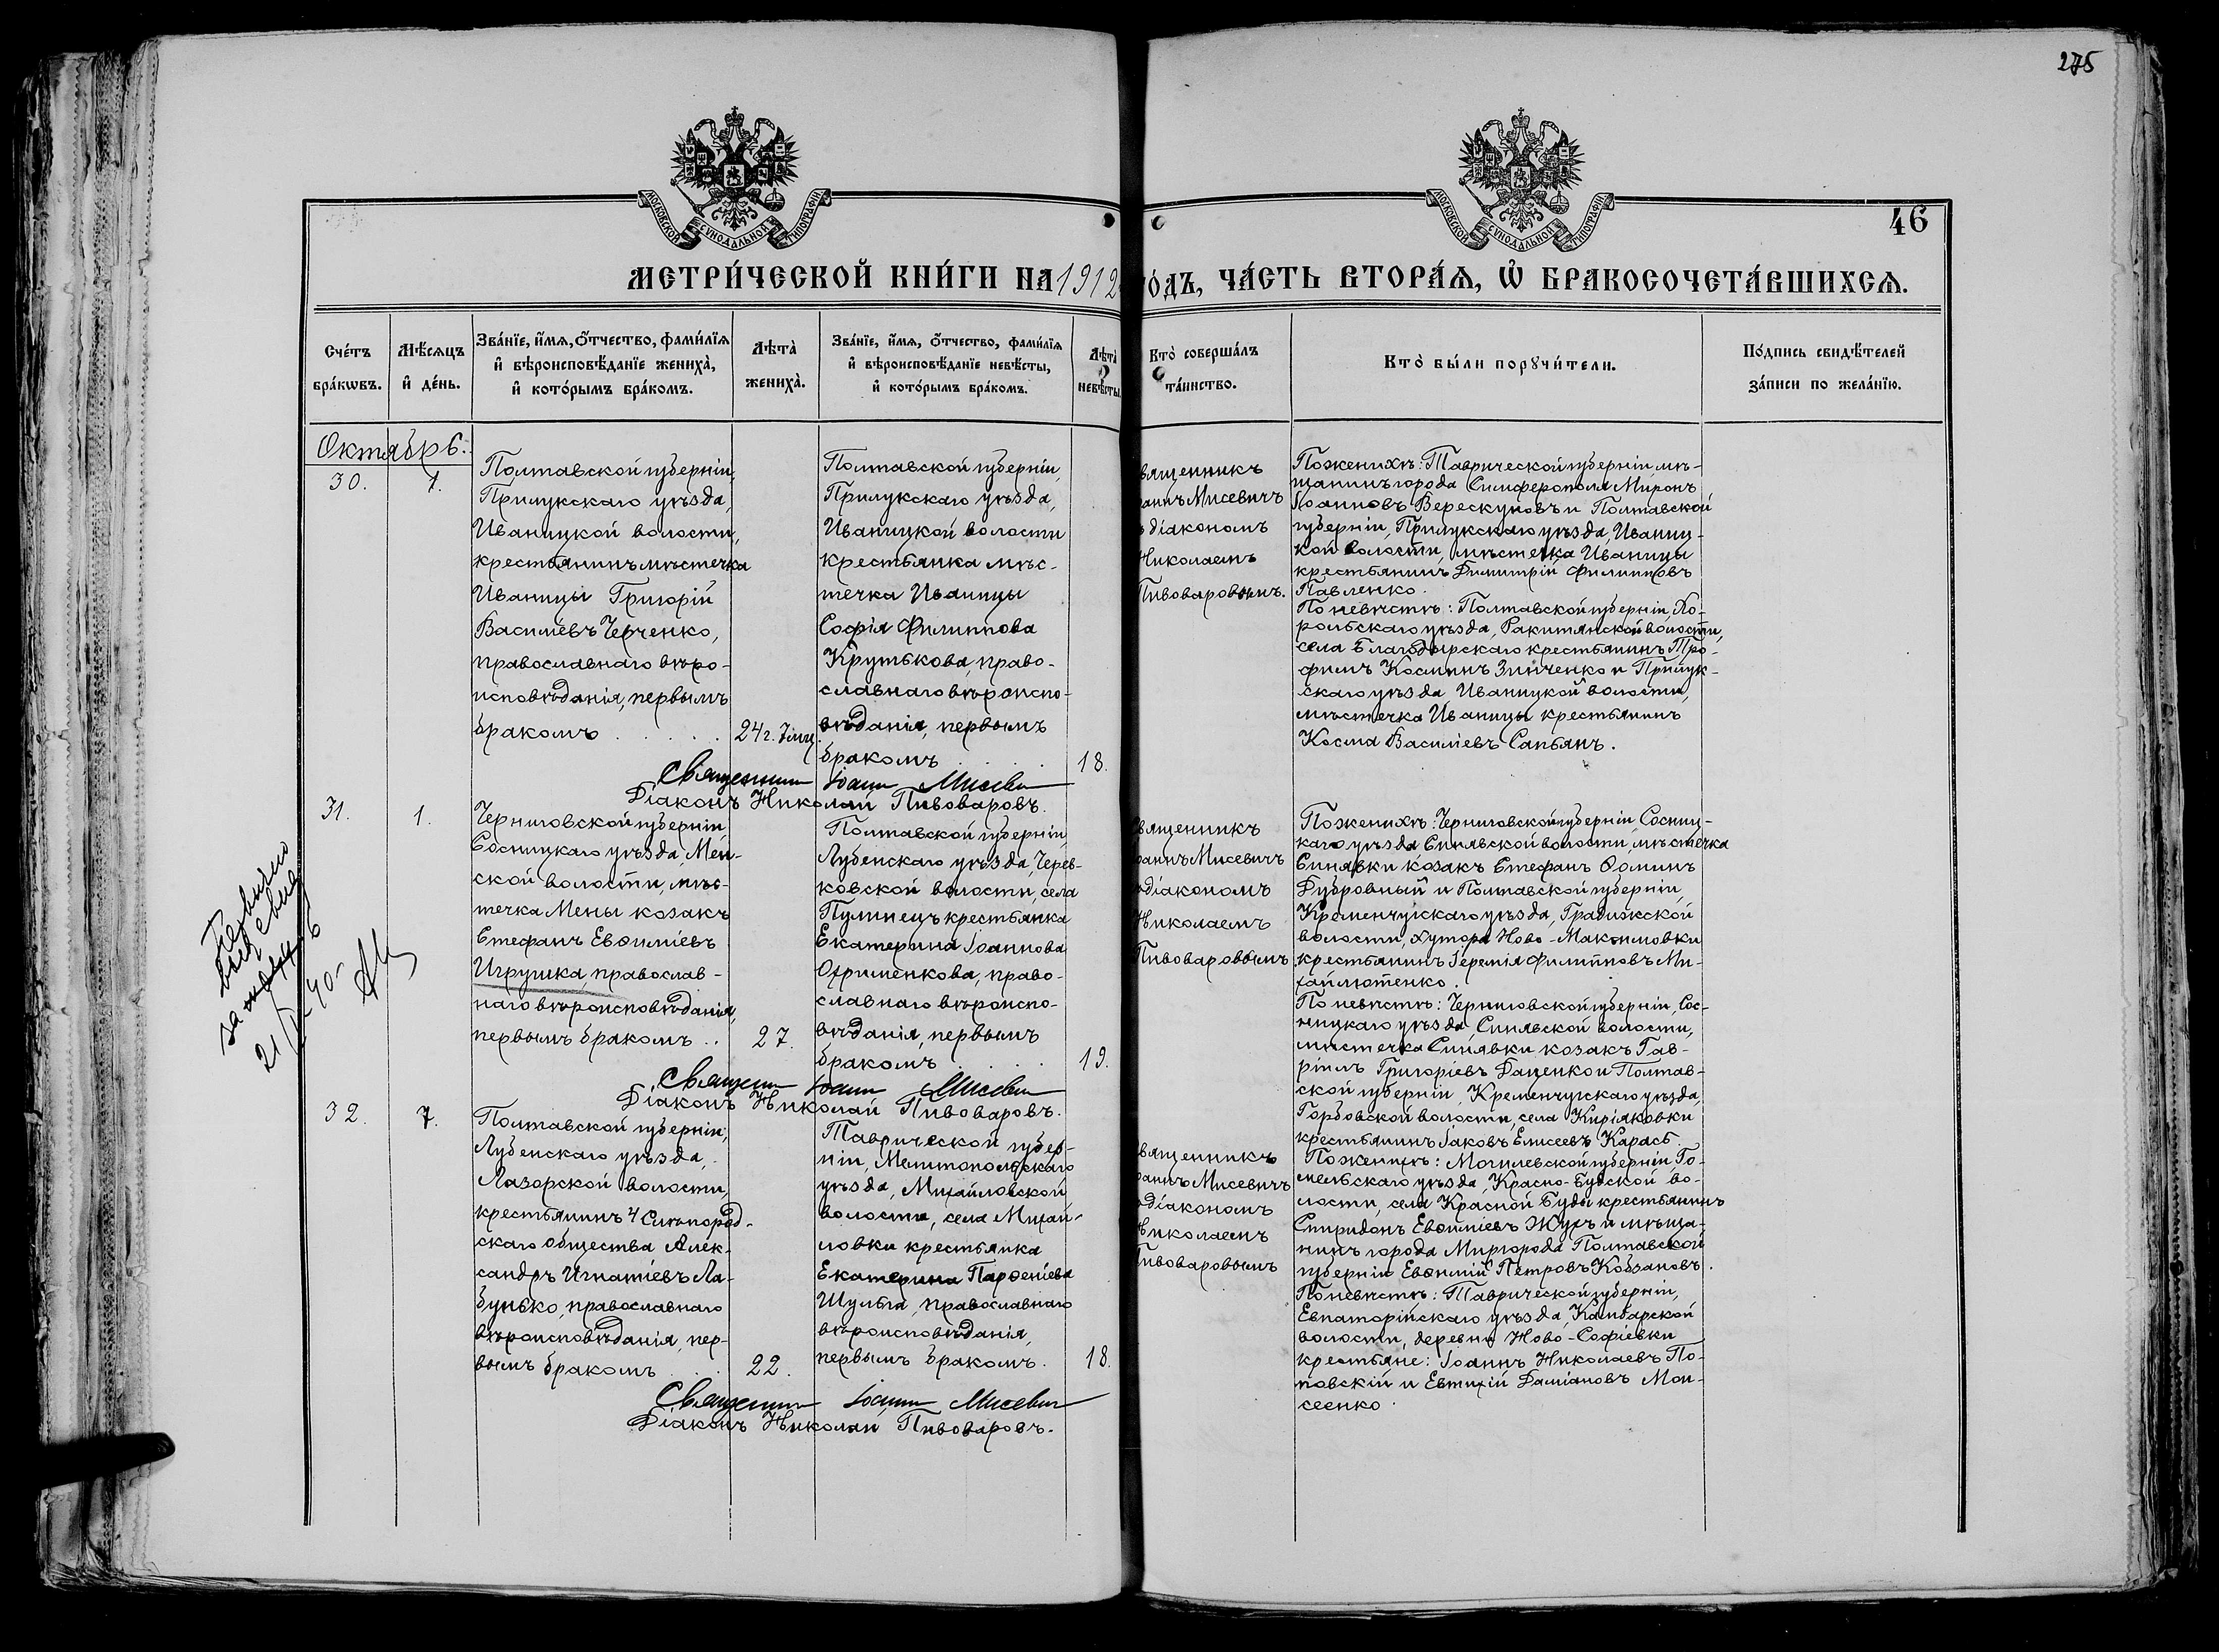 275
46
МОСКОВСКОЙ СѴНОДАЛЬНОЙ ТИПОГРАФІИ
МОСКОВСКОЙ СѴНОДАЛЬНОЙ ТИПОГРАФІИ
МЕТРИ́ЧЕСКОЙ КНИ́ГИ НА 1912 ГО́ДЪ, ЧА́СТЬ ВТОРА́Ѧ, Ѽ БРАКОСОЧЕТА́ВШИХСѦ.
Сче́тъ бра́кѡвъ.
Мѣ́сѧцъ и҆ де́нь.
Зва́нїе, и҆́мѧ, ѻ҆́тчество, фами́лїѧ
и҆ вѣроисповѣ́данїе жениха̀,
и҆ кото́рымъ бра́комъ.
Лѣта̀ жениха̀.
Зва́нїе, и҆́мѧ, ѻ҆́тчество, фами́лїѧ
и҆ вѣроисповѣ́данїе невѣ́сты,
и҆ кото́рымъ бра́комъ.
Лѣта̀ невѣ́сты
Кто̀ соверша́лъ
та́инство.
Кто̀ бы́ли порꙋчи́тели.
По́дпись свидѣ́телей
за́писи по жела́нїю.
Октябрь.
30.
1.
Полтавской губерніи,
Прилукскаго уѣзда,
Иваницкой волости,
крестьянинъ мѣстечка
Иваницы Григорій
Василіевъ Черченко,
православнаго вѣро-
исповѣданія, первымъ
бракомъ
24 г. 7 мц.
Полтавской губерніи,
Прилукскаго уѣзда,
Иваницкой волости
крестьянка мѣс-
течка Иваницы
Софія Филиппова
Крутькова, право-
славнаго вѣроиспо-
вѣданія, первымъ
бракомъ
18.
вященникъ
аннъ Мисевичъ
ъ діакономъ
Николаемъ
Пивоваровымъ.
По женихѣ: Таврической губерніи мѣ-
щанинъ города Симферополя Миронъ
Іоанновъ Верескуновъ и Полтавской
губерніи, Прилукскаго уѣзда, Иваниц-
кой волости, мѣстечка Иваницы
крестьянинъ Димитрій Филипповъ
Павленко.
По невѣстѣ: Полтавской губерніи, Хо-
рольскаго уѣзда, Ракитянской волости,
села Благодарскаго крестьянинъ Тро-
фимъ Косминъ Зинченко и Прилук-
скаго уѣзда Иваницкой волости,
мѣстечка Иваницы крестьянинъ
Косма Василіевъ Сапьянъ.
Священникъ Іоаннъ Мисевич
Діаконъ Николай Пивоваровъ.
31.
1.
Черниговской губерніи
Сосницкаго уѣзда, Мен-
ской волости, мѣс-
течка Мены козакъ
Стефанъ Евѳиміевъ
Игрушка, православ-
наго вѣроисповѣданія,
первымъ бракомъ ..
27.
Полтавской губерніи,
Лубенскаго уѣзда, Черев-
ковской волости, села
Пулинецъ крестьянка
Екатерина Іоаннова
Охрименкова, право-
славнаго вѣроиспо-
вѣданія, первымъ
бракомъ
19.
вященникъ
оаннъ Мисевичъ
діакономъ
Николаемъ
Пивоваровымъ
По женихѣ: Черниговской губерніи Сосниц-
каго уѣзда Синявской волости, мѣстечка
Синявки козакъ Стефанъ Ѳоминъ
Дубровный и Полтавской губерніи,
Кременчугскаго уѣзда, Градижской
волости, хутора Ново-Максимовки
крестьянинъ Іеремія Филипповъ Ми-
хайлютенко.
По невѣстѣ: Черниговской губерніи, Сос-
ницкаго уѣзда, Синявской волости,
мѣстечка Синявки козакъ Гав-
ріилъ Григоріевъ Даценко и Полтав-
ской губерніи, Кременчугскаго уѣзда,
Горбовской волости, села Киріяковки
крестьянинъ Іаковъ Елисеевъ Карась.
Священник Іоанн Мисевич
Діаконъ Николай Пивоваровъ.
21/V-40-
32.
7.
Полтавской губерніи,
Лубенскаго уѣзда,
Лазорской волости,
крестьянинъ 4 Снѣпород-
скаго общества Алек-
сандръ Игнатіевъ Ла-
бунько, православнаго
вѣроисповѣданія, пер-
вымъ бракомъ
22.
Таврической губер-
ніи, Мелитопольскаго
уѣзда, Михайловской
волости, села Михай-
ловки крестьянка
Екатерина Парѳеніева
Шульга, православнаго
вѣроисповѣданія,
первымъ бракомъ.
18.
вященникъ
оаннъ Мисевичъ
діакономъ
Николаемъ
Пивоваровымъ
По женихѣ: Могилевской губерніи, Го-
мельскаго уѣзда, Красно-Будской во-
лости, села Красной Буды крестьянинъ
Спиридонъ Евѳиміевъ Жукъ и мѣща-
нинъ города Миргорода Полтавской
губерніи Евѳимій Петровъ Кобзановъ.
По невѣстѣ: Таврической губерніи,
Евпаторійскаго уѣзда, Камбарской
волости, деревни Ново-Софіевки
крестьяне: Іоаннъ Николаевъ По-
повскій и Евтихій Даміановъ Мои-
сеенко.
Священник Іоанн Мисевич
Діаконъ Николай Пивоваровъ.